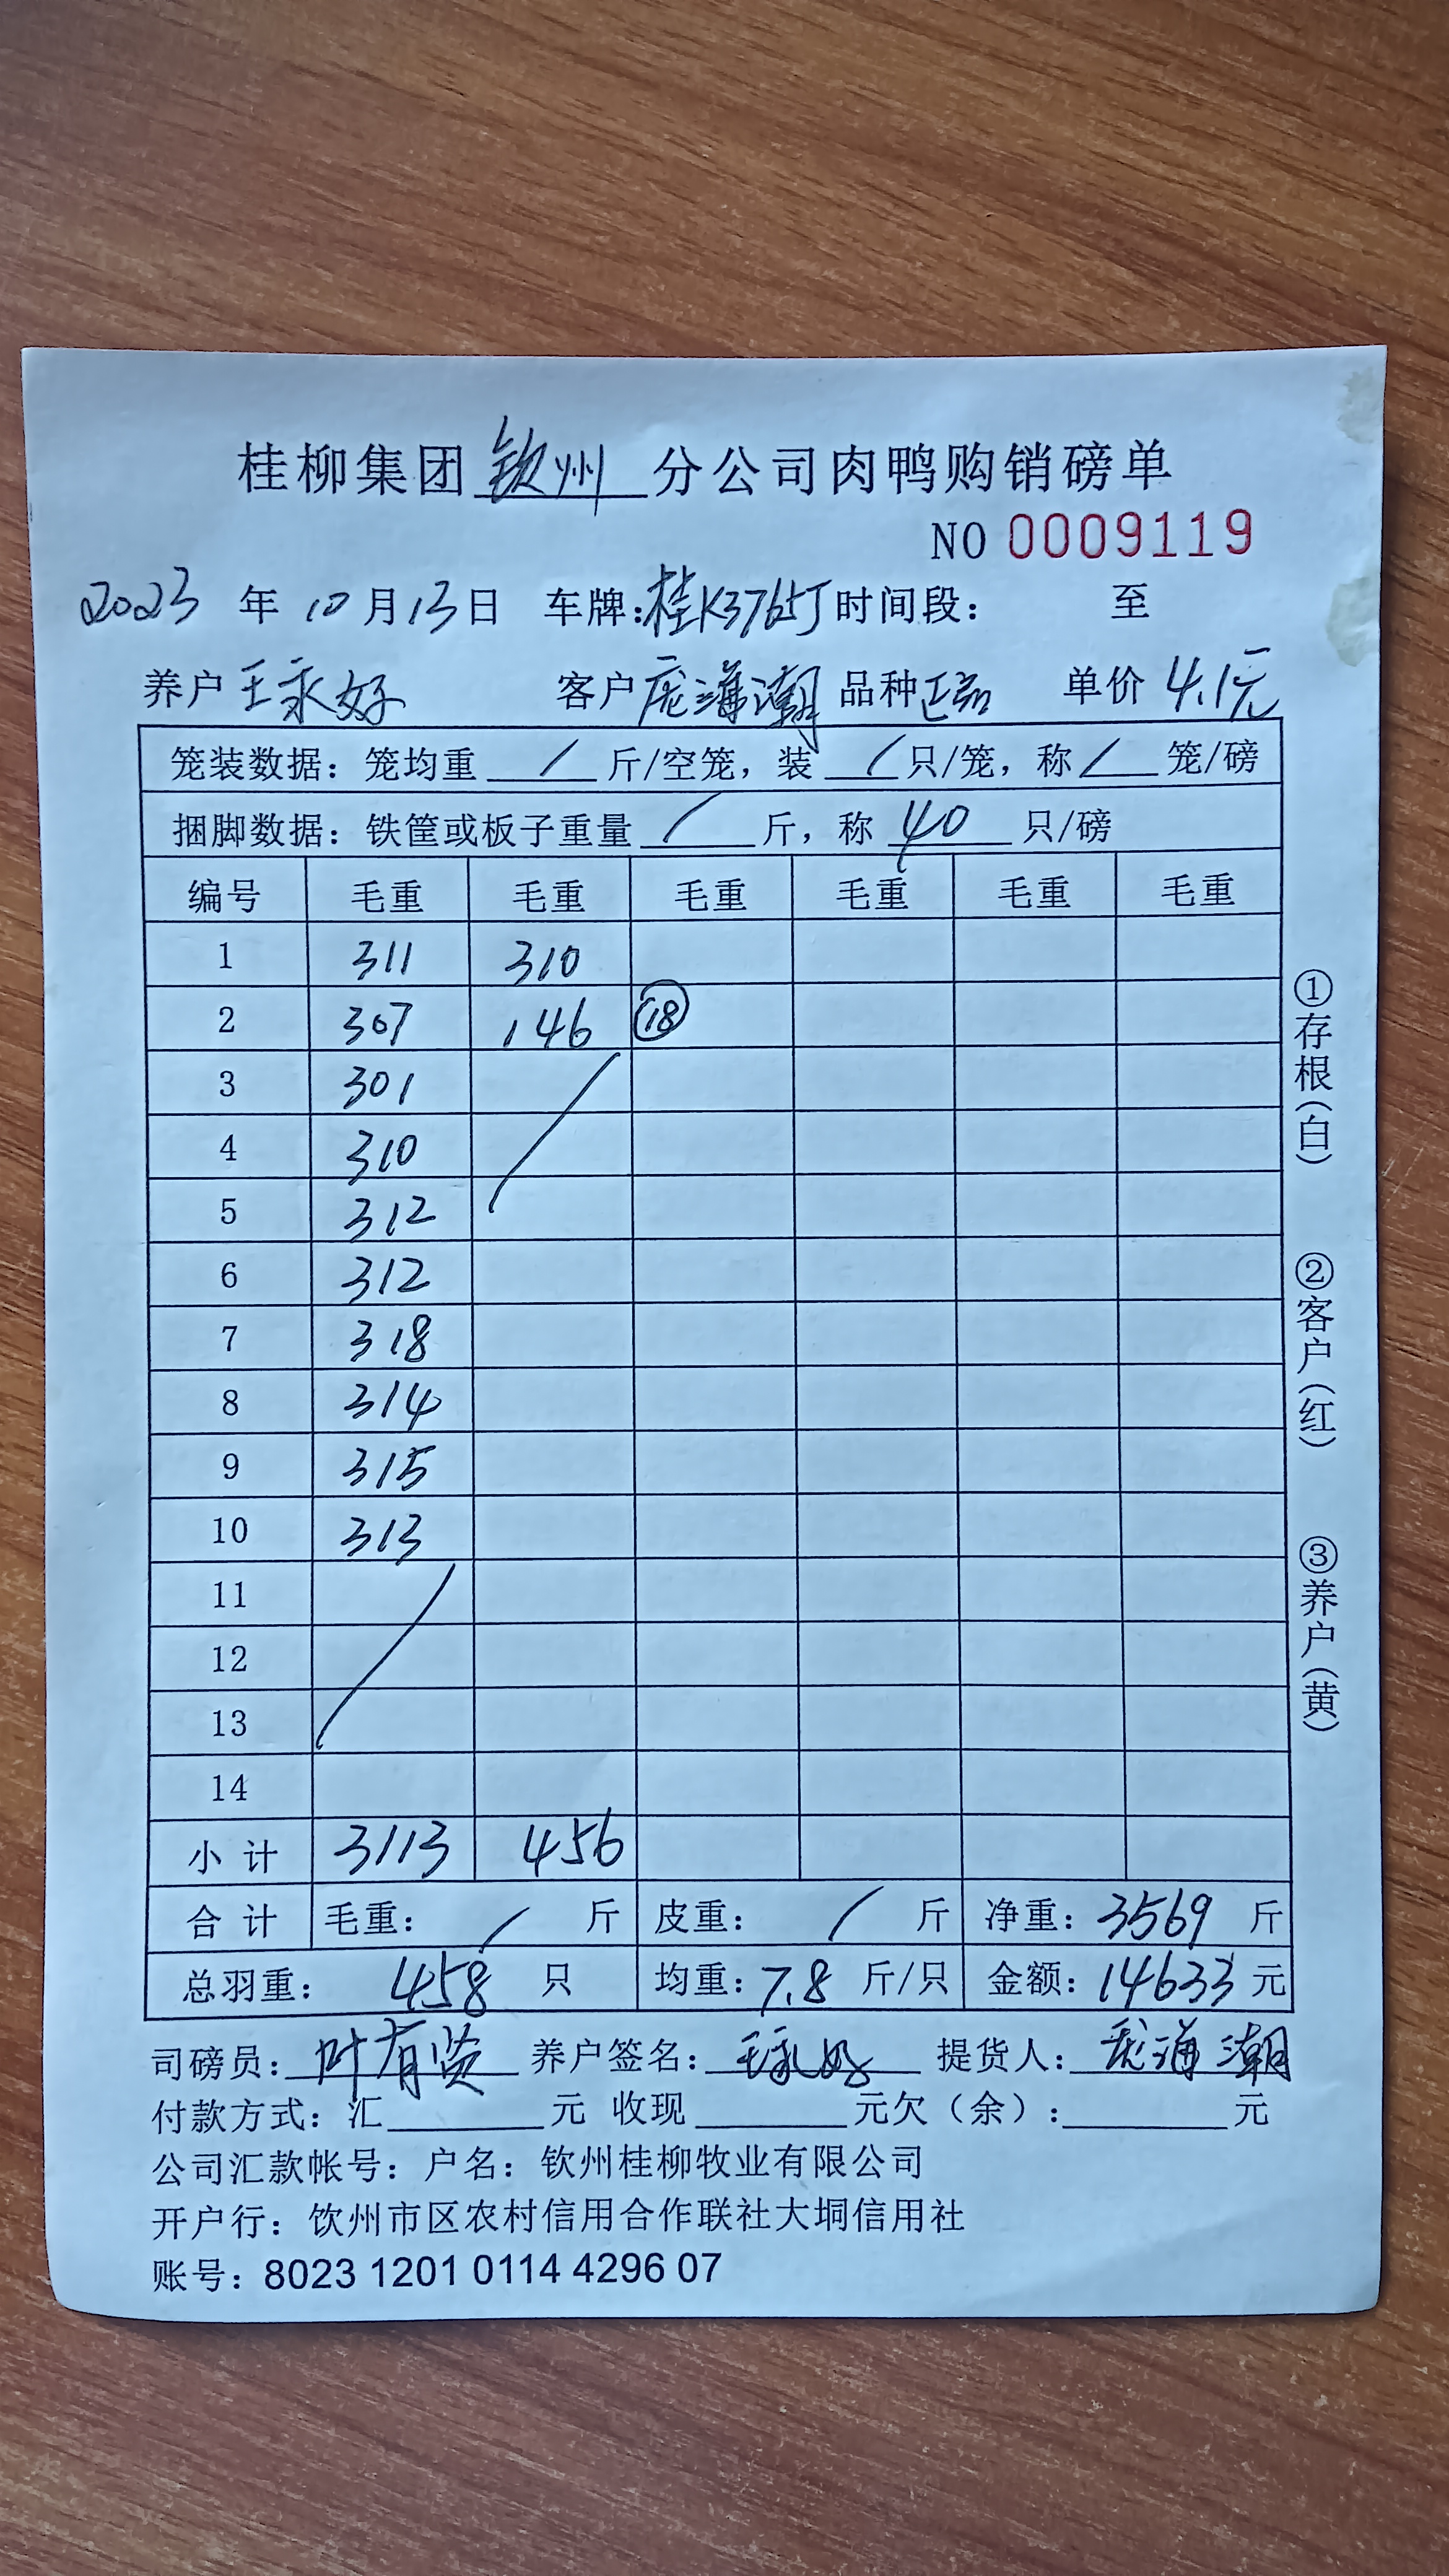 桂柳集团 钦州 分公司肉鸭购销磅单
NO 0009119
2023 年 10 月 13 日 车牌:桂K3765J 时间段: 至
养户 王永好 客户 庞满潮 品种 正品 单价 4.1元
笼装数据: 笼均重 / 斤/空笼, 装 / 只/笼, 称 / 笼/磅
捆脚数据: 铁筐或板子重量 / 斤, 称 40 只/磅
编号 毛重 毛重 毛重 毛重 毛重 毛重
1 311 310
2 307 146 ⑱
3 301
4 310
5 312
6 312
7 318
8 314
9 315
10 313
11
12
13
14
小计 3113 456
合计 毛重: / 斤 皮重: / 斤 净重: 3569 斤
总羽重: 458 只 均重: 7.8 斤/只 金额: 14633 元
司磅员: 叶有贤 养户签名: 王永好 提货人: 庞满潮
付款方式: 汇 元 收现 元欠(余): 元
公司汇款帐号: 户名: 钦州桂柳牧业有限公司
开户行: 钦州市区农村信用合作联社大垌信用社
账号: 8023 1201 0114 4296 07
①存根(白)
②客户(红)
③养户(黄)